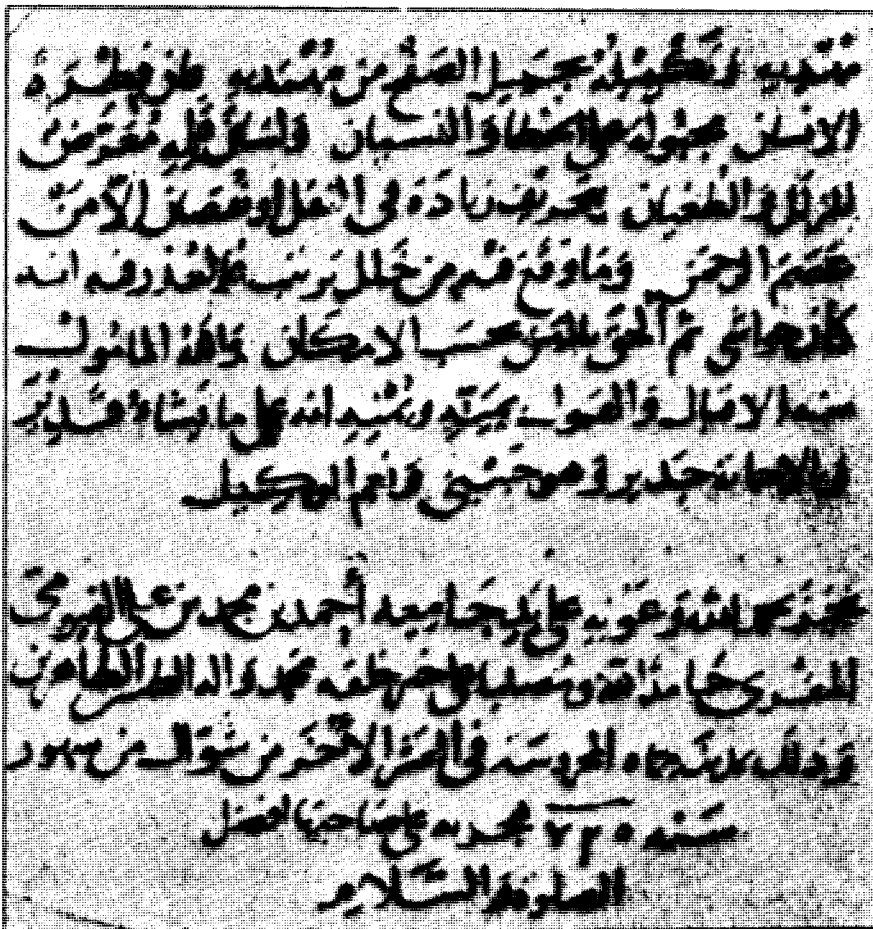 منتديه وتكميله بجميل الصفح من مهتديه فان فطرة
الانسان مجبولة على الخطأ والنسيان ولسان قلمه معرض
للزلل والطغيان بتحريف زيادة في النقل او نقصان الا من
عصم الرحمن وما وقع فيه من خلل ترتيب فالعذر فيه انه
كان حواشي ثم الحق بالمتن بحسب الامكان والله المامول
بمنه وتمنيه انه على ما يشاء قدير
وبالاجابة جدير وهو حسبي ونعم الوكيل
نجز بحمد الله وعونه على يد جامعه أحمد بن محمد بن علي الفيومي
المقري حامدا لله ومصليا على خير خلقه محمد واله الطاهرين
وذلك بمدينة حماه المحروسة في العشر الأخر من شوال من شهور
سنه ٧٣٥ هجريه على صاحبها افضل
الصلوة والسلام